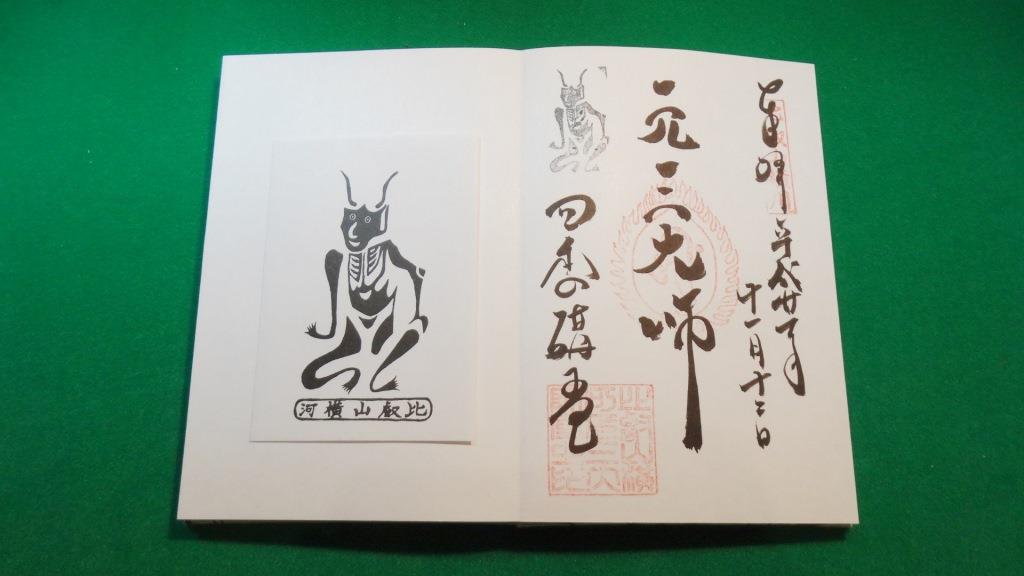 奉拝
平成廿一年
十一月十二日
元三大師
四季の講堂
比叡山横河